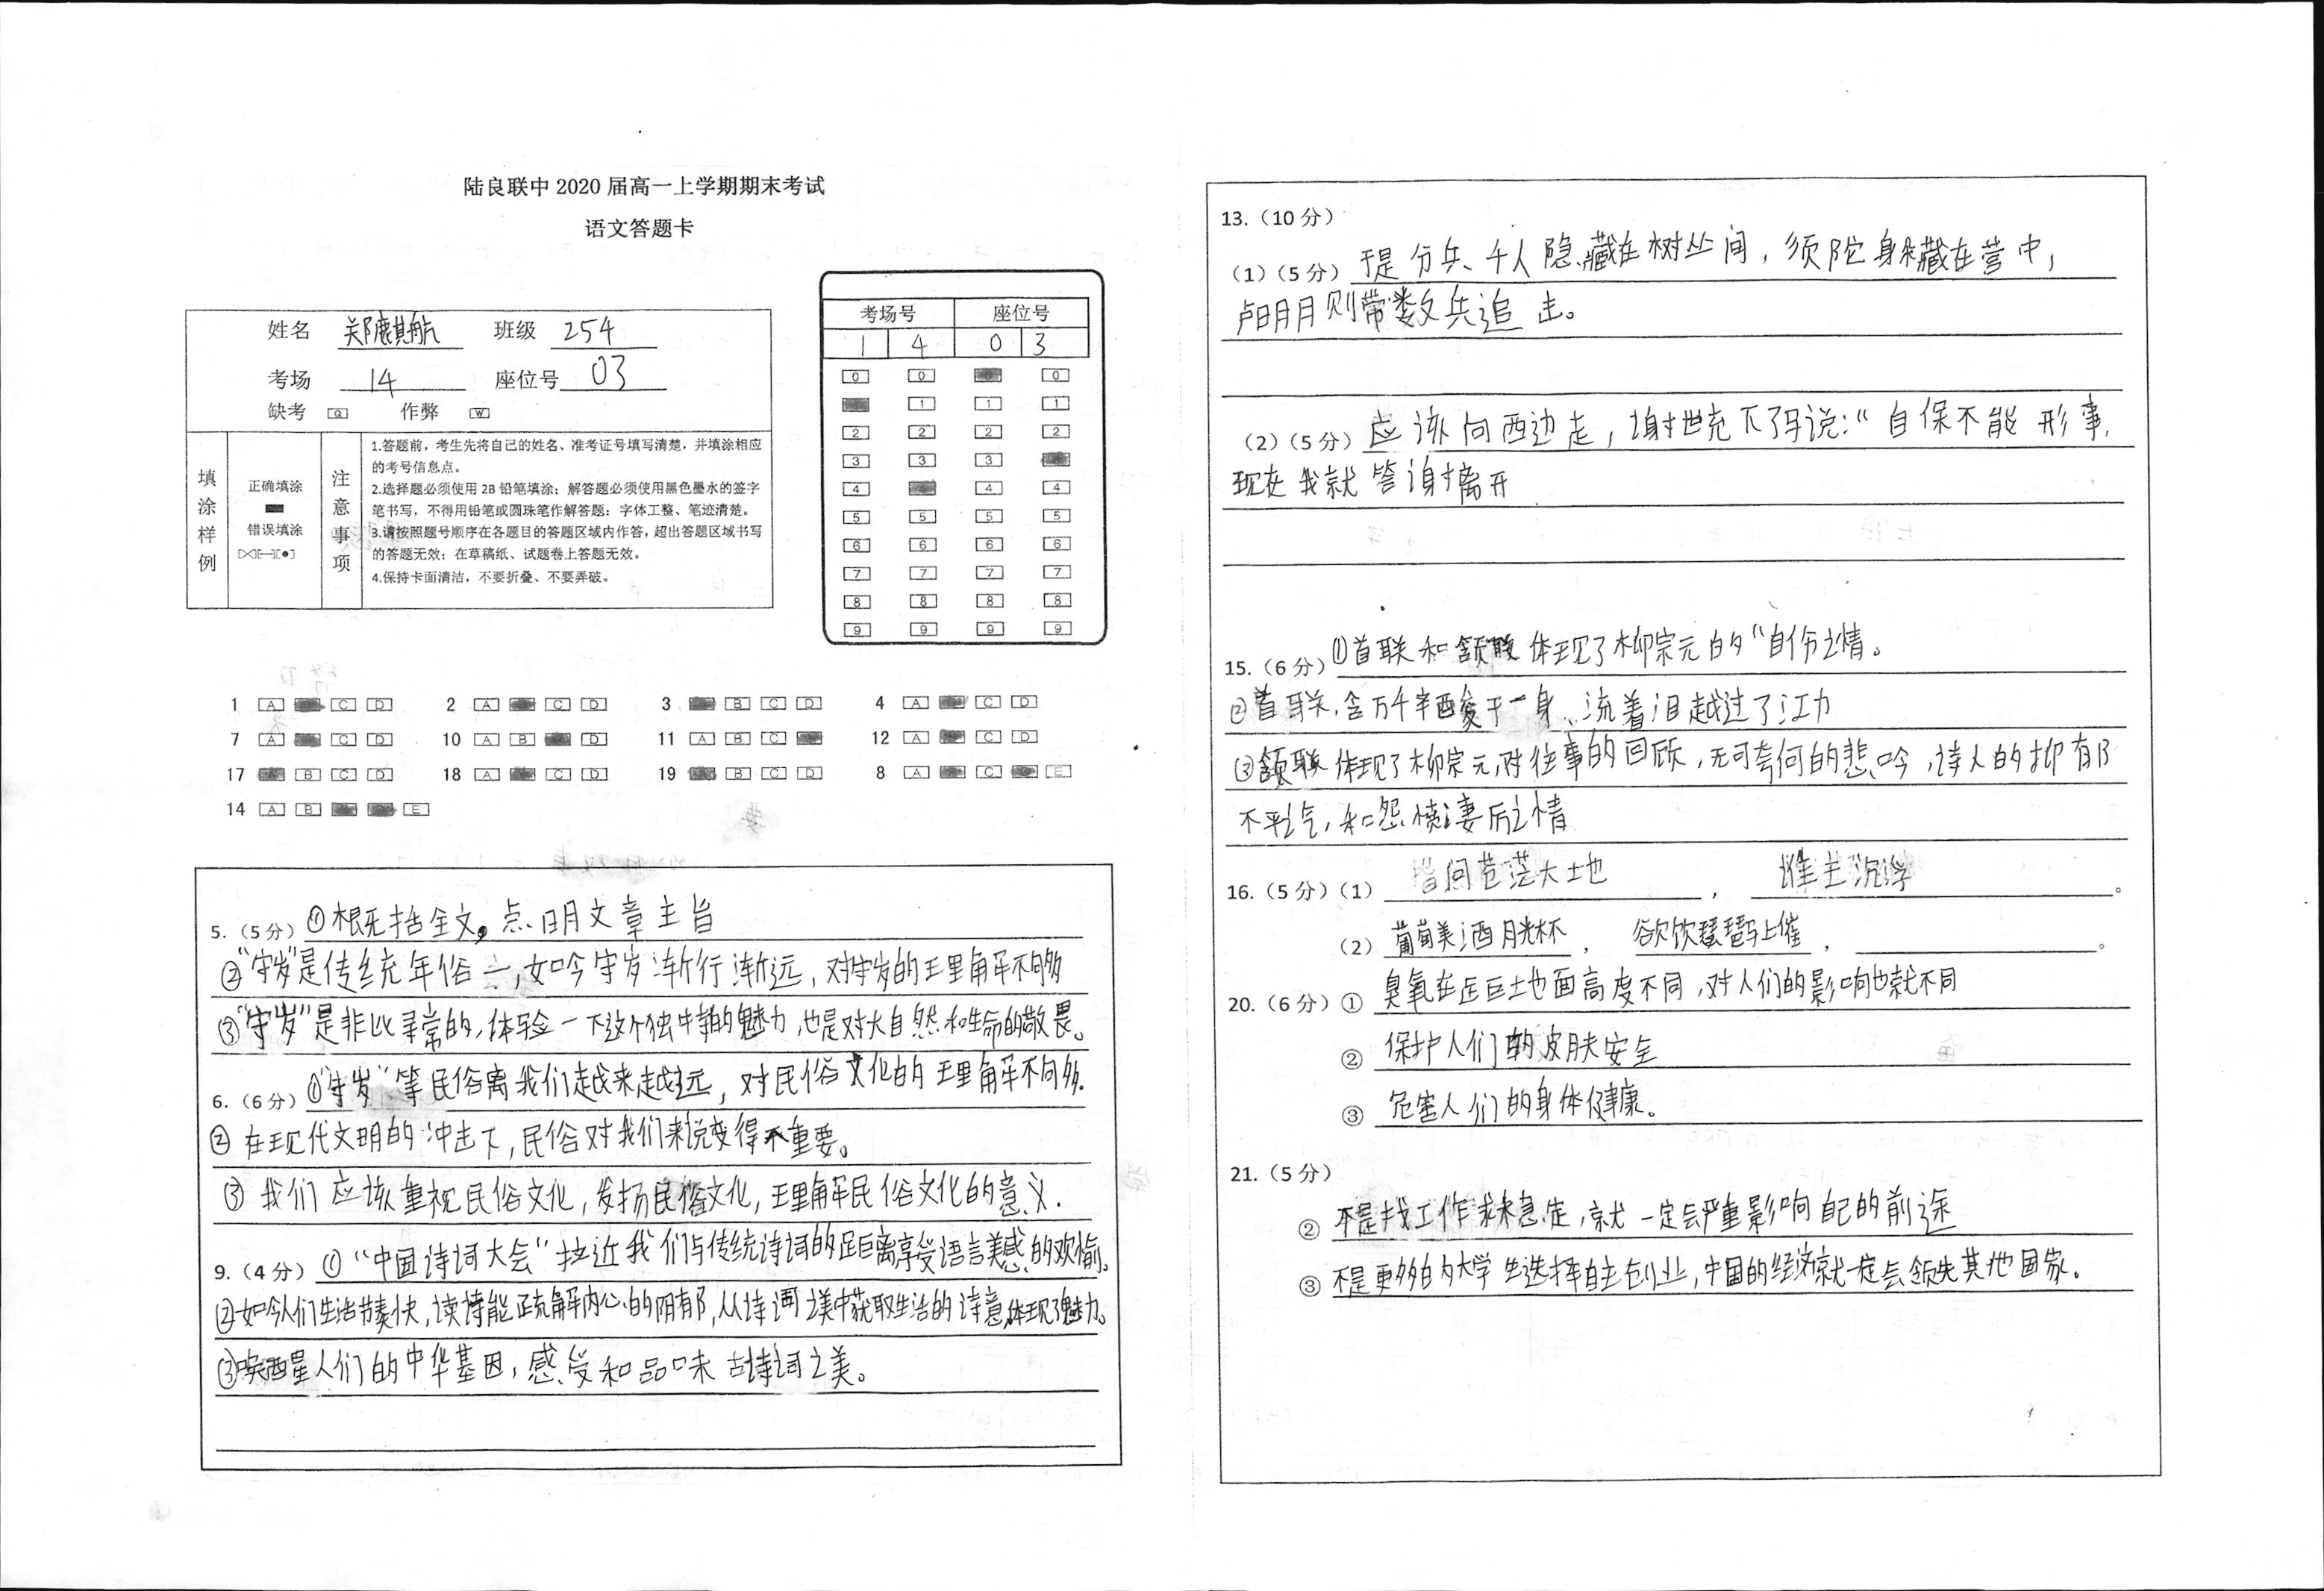 陆良联中 2020 届高一上学期期末考试
语文答题卡
姓名 郑麒航 班级 254
考场 14 座位号 03
缺考 Q 作弊 W
填涂样例
正确填涂
错误填涂
注意事项
1.答题前，考生先将自己的姓名、准考证号填写清楚，并填涂相应
的考号信息点。
2.选择题必须使用 2B 铅笔填涂；解答题必须使用黑色墨水的签字
笔书写，不得用铅笔或圆珠笔作解答题；字体工整、笔迹清楚。
3.请按照题号顺序在各题目的答题区域内作答，超出答题区域书写
的答题无效；在草稿纸、试题卷上答题无效。
4.保持卡面清洁，不要折叠、不要弄破。
考场号 座位号
1 4 0 3
0 0 0
1 1 1
2 2 2 2
3 3 3
4 4 4
5 5 5 5
6 6 6 6
7 7 7 7
8 8 8 8
9 9 9 9
1 A C D 2 A C D 3 B C D 4 A C D
7 A C D 10 A B D 11 A B C 12 A C D
17 B C D 18 A C D 19 B C D 8 A C E
14 A B E
5.（5 分）①概括全文，点明文章主旨
②"守岁"是传统年俗之一，如今守岁渐行渐远，对守岁的理解不同多
③"守岁"是非比寻常的，体验一下这个独特的魅力，也是对大自然和生命的敬畏。
6.（6 分）①"守岁"等民俗离我们越来越远，对民俗文化的理解不同多.
②在现代文明的冲击下，民俗对我们来说变得不重要。
③我们应该重视民俗文化，发扬民俗文化，理解民俗文化的意义.
9.（4 分）①"中国诗词大会"拉近我们与传统诗词的距离享受语言美感的欢愉。
②如今人们生活节奏快，读诗能疏解内心的阴郁，从诗词之美中获取生活的诗意，体现了魅力。
③唤醒人们的中华基因，感受和品味古诗词之美。
13.（10 分）
（1）（5 分）于是分兵千人隐藏在树丛间，须陀身躲藏在营中，
卢明月则带数兵追击。
（2）（5 分）应该向西边走，谢世充下了马说："自保不能形事，
现在我就答谢离开
15.（6 分）①首联和颔联体现了柳宗元的"自伤之情。
②首联，含万千辛酸于一身，流着泪越过了江力
③颔联体现了柳宗元，对往事的回顾，无可奈何的悲吟，诗人的抑郁
不平之气，和怨愤凄厉之情
16.（5 分）（1）指问苍茫大地，谁主沉浮。
（2）葡萄美酒月光杯，欲饮琵琶马上催，。
20.（6 分）① 臭氧在距土地面高度不同，对人们的影响也就不同
② 保护人们的皮肤安全
③ 危害人们的身体健康。
21.（5 分）
② 不是找工作求稳定，就一定会严重影响自己的前途
③ 不是更多的大学生选择自主创业，中国的经济就一定会领先其他国家。